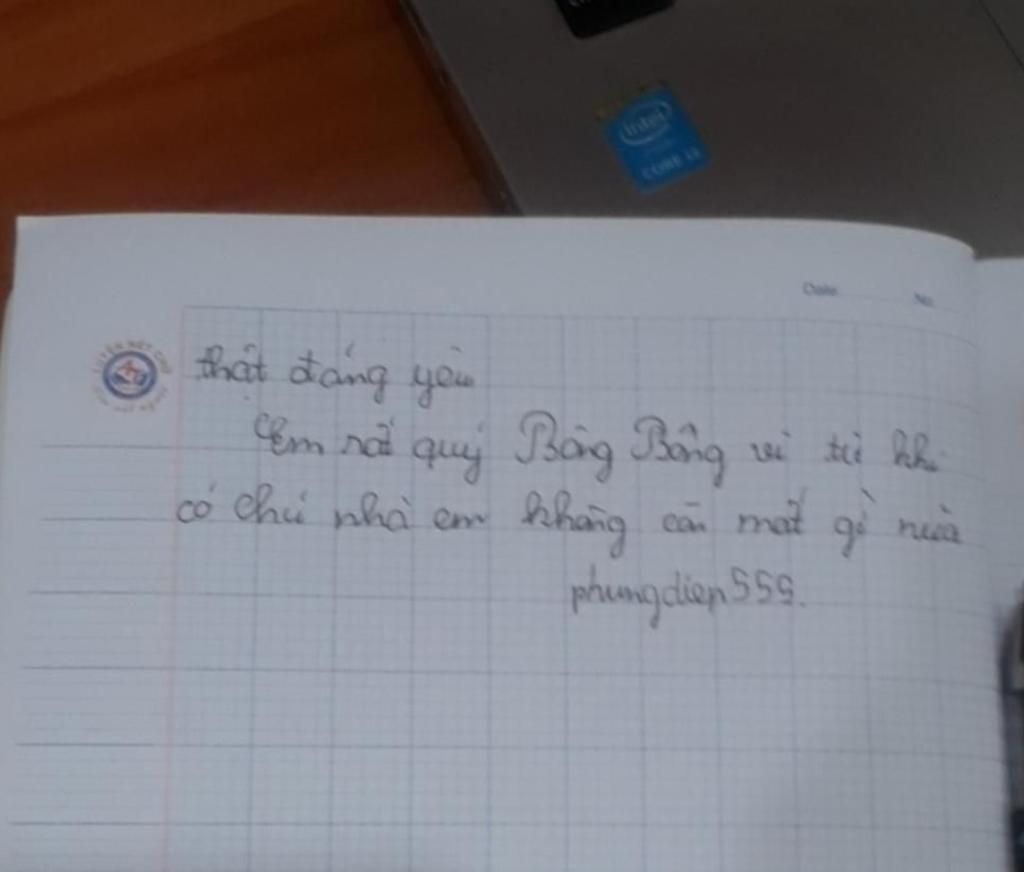 intel
CORE i3
Date No
LUYỆN NÉT CHỮ
thật đáng yêu
Em rất quý Bông Bông vì từ khi
có chú nhà em không còn mất gì nữa
phungdiep555.